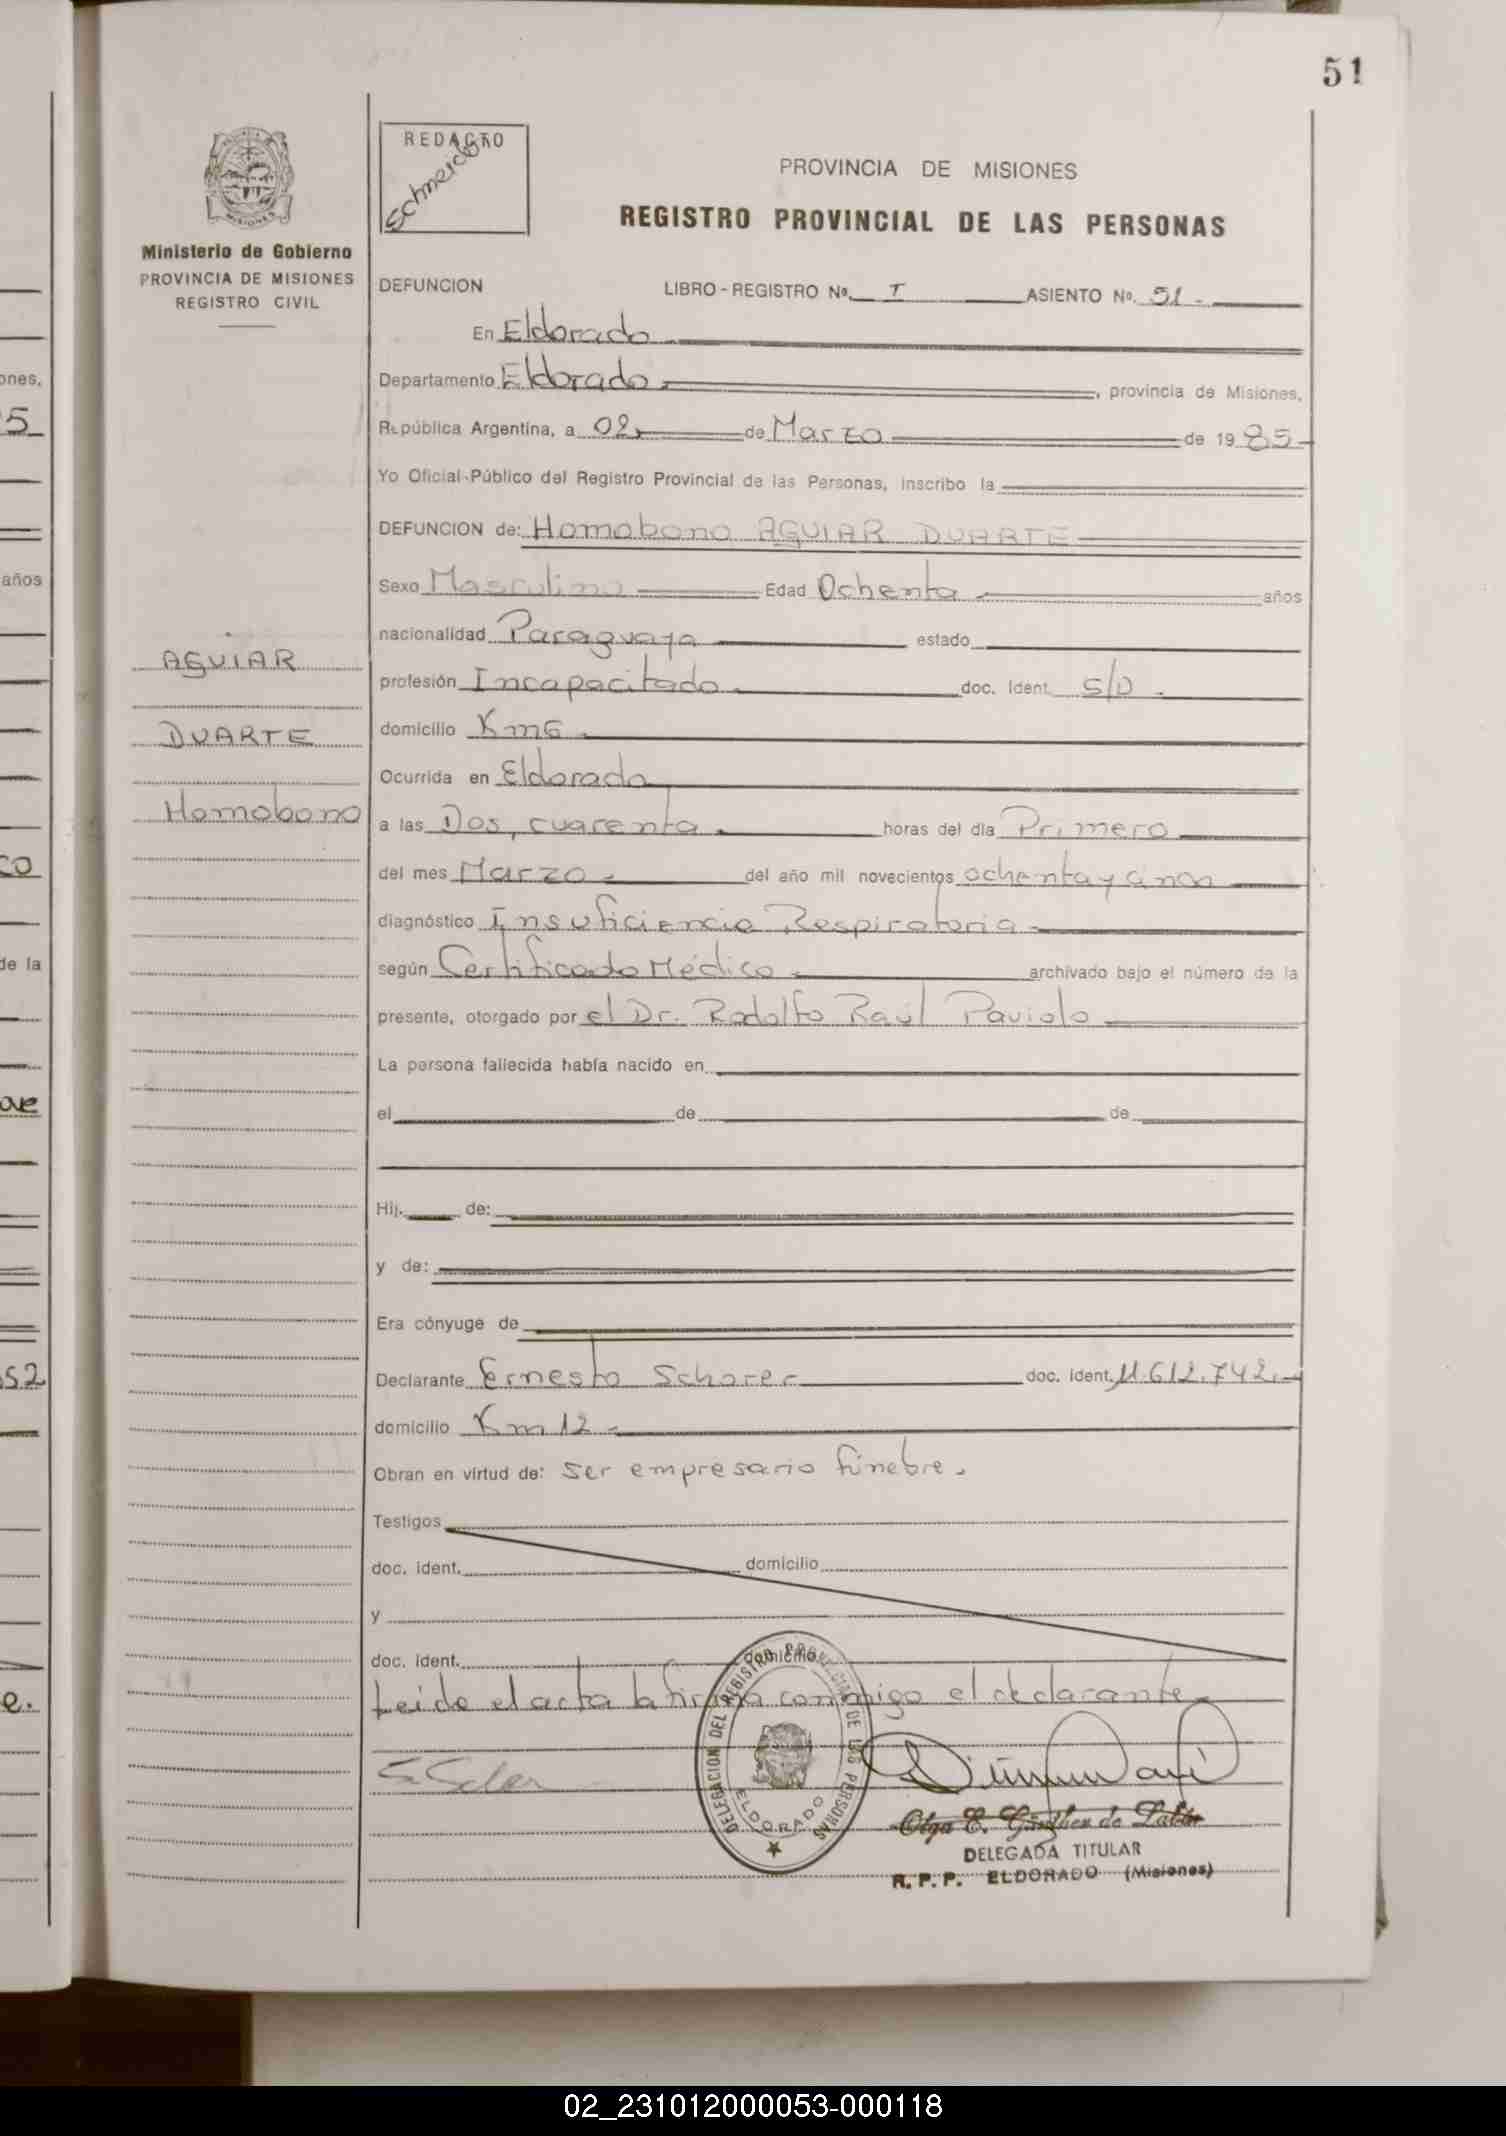 51
REDACTO
Schneider
PROVINCIA DE MISIONES
REGISTRO PROVINCIAL DE LAS PERSONAS
Ministerio de Gobierno
PROVINCIA DE MISIONES
REGISTRO CIVIL
DEFUNCION LIBRO - REGISTRO Nº. I ASIENTO Nº. 51.-
En Eldorado
Departamento Eldorado, provincia de Misiones,
República Argentina, a 02 de Marzo de 1985-
Yo Oficial Público del Registro Provincial de las Personas, inscribo la
DEFUNCION de: Homobono AGUIAR DUARTE
Sexo Masculino Edad Ochenta años
nacionalidad Paraguaya estado
profesión Incapacitado doc. Ident. S/D.
domicilio Km6
Ocurrida en Eldorado
a las Dos, cuarenta horas del día Primero
del mes Marzo del año mil novecientos ochenta y cinco
diagnóstico Insuficiencia Respiratoria
según Certificado Médico archivado bajo el número de la
presente, otorgado por el Dr. Rodolfo Raúl Paviolo
La persona fallecida había nacido en
el de de
Hij. de:
y de:
Era cónyuge de
Declarante Ernesto Schorer doc. ident. 11.612.742.-
domicilio Km 12
Obran en virtud de: ser empresario fúnebre.
Testigos
doc. ident. domicilio
y
doc. ident. domicilio
Leido el acta la firma conmigo el declarante
AGUIAR
DUARTE
Homobono
DELEGACION DEL REGISTRO PROVINCIAL DE LAS PERSONAS
ELDORADO
Olga E. de
DELEGADA TITULAR
R. P. P. ELDORADO (Misiones)
ones,
5
años
co
de la
ove
52
e.
02_231012000053-000118